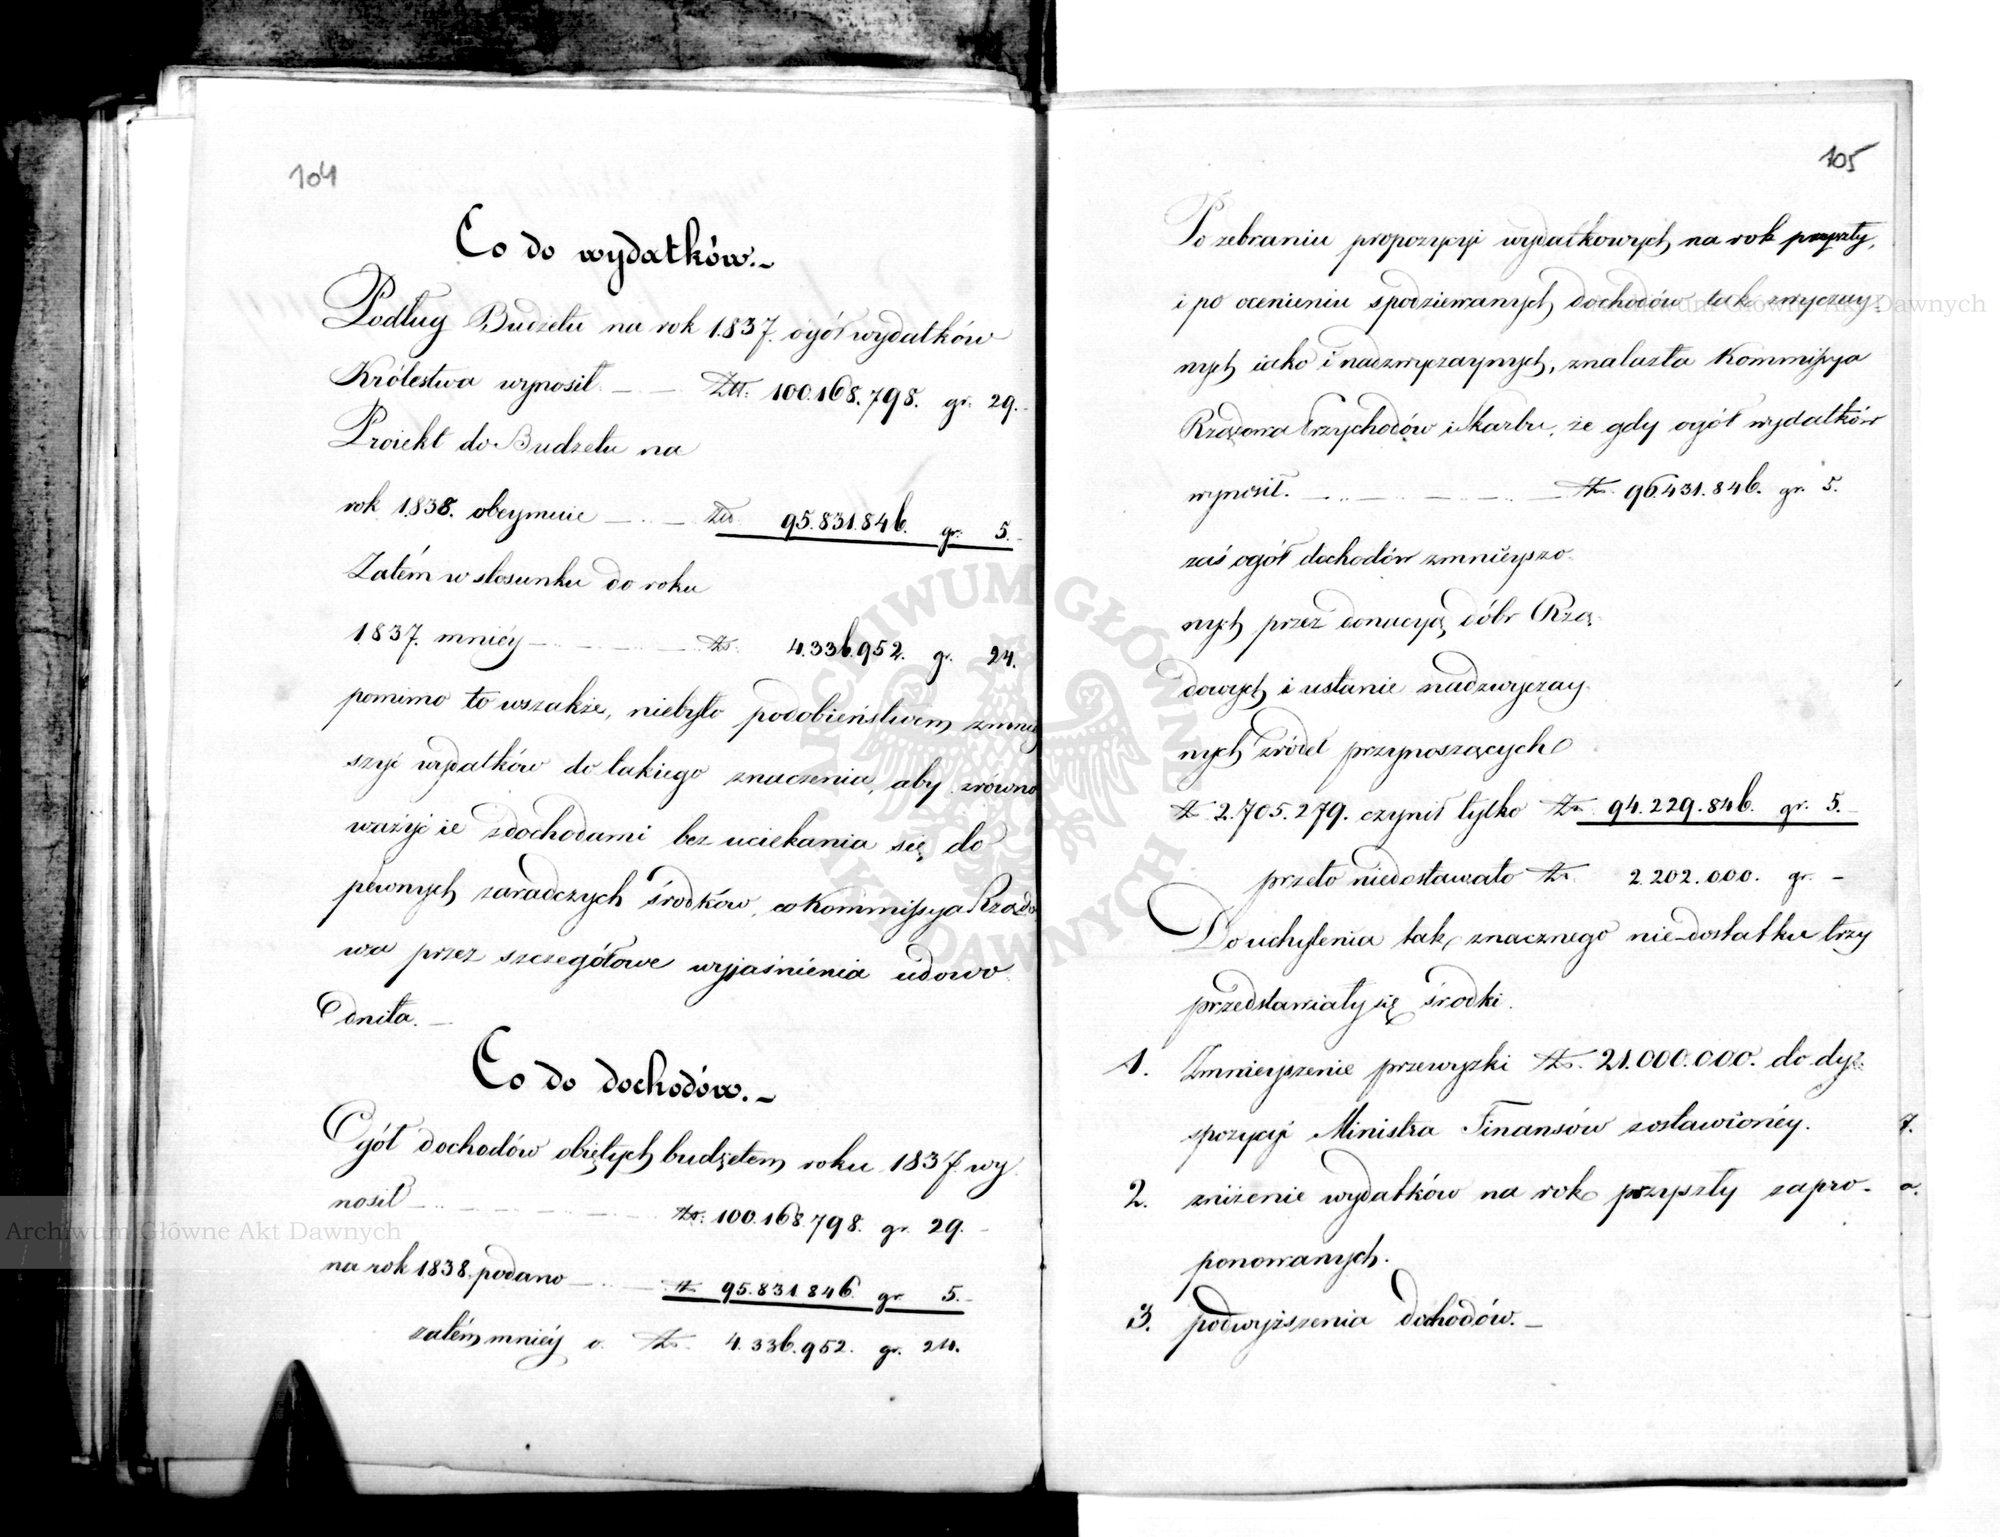 104
Co do wydatków.-
Podług Budżetu na rok 1837. ogół wydatków
Królestwa wynosił. — — Złt. 100.168.798. gr. 29.-
Proiekt do Budżetu na
rok 1838. obeymuie — — Złt. 95.831.846. gr. 5.-
Zatém w stosunku do roku
1837. mniéy — — — Zł. 4.336.952. gr. 24.
pomimo to wszakże, niebyło podobieństwem zmniey
szyć wydatków do takiego znaczenia, aby zrówno
ważyć ie z dochodami bez uciekania się do
pewnych zaradczych środków, co Kommissya Rządo
wa przez szczegółowe wyjaśnienia udowo
dniła. —
Co do dochodów.-
Ogół dochodów obiętych budżetem roku 1837. wy
nosił — — — Zł. 100.168.798. gr. 29.-
na rok 1838. podano — — Zł. 95.831.846. gr. 5.-
zatém mniéy o. Zł. 4.336.952. gr. 24.
105
Po zebraniu propozycyi wydatkowych na rok przyszły,
i po ocenieniu spodziewanych dochodów tak zwyczay-
nych iako i nadzwyczaynych, znalazła Kommissya
Rządowa Przychodów i Skarbu, że gdy ogół wydatków
wynosił. — — — Zł. 96.431.846. gr. 5.
zaś ogół dochodów zmnieyszo-
nych przez donacyę dóbr Rzą-
dowych i ustanie nadzwyczay-
nych źródeł przynoszących
Zł. 2.705.279. czynił tylko Zł. 94.229.846. gr. 5.-
przeto niedostawało Zł. 2.202.000. gr. -
Do uchylenia tak znacznego nie-dostatku trzy
przedstawiały się środki.
1. Zmnieyszenie przewyżki Zł. 21.000.000. do dys-
spozycyi Ministra Finansów zostawionéy.
2. zniżenie wydatków na rok przyszły zapro-
ponowanych.
3. podwyższenia dochodów. —
Archiwum Główne Akt Dawnych
Archiwum Główne Akt Dawnych
ARCHIWUM GŁÓWNE AKT DAWNYCH